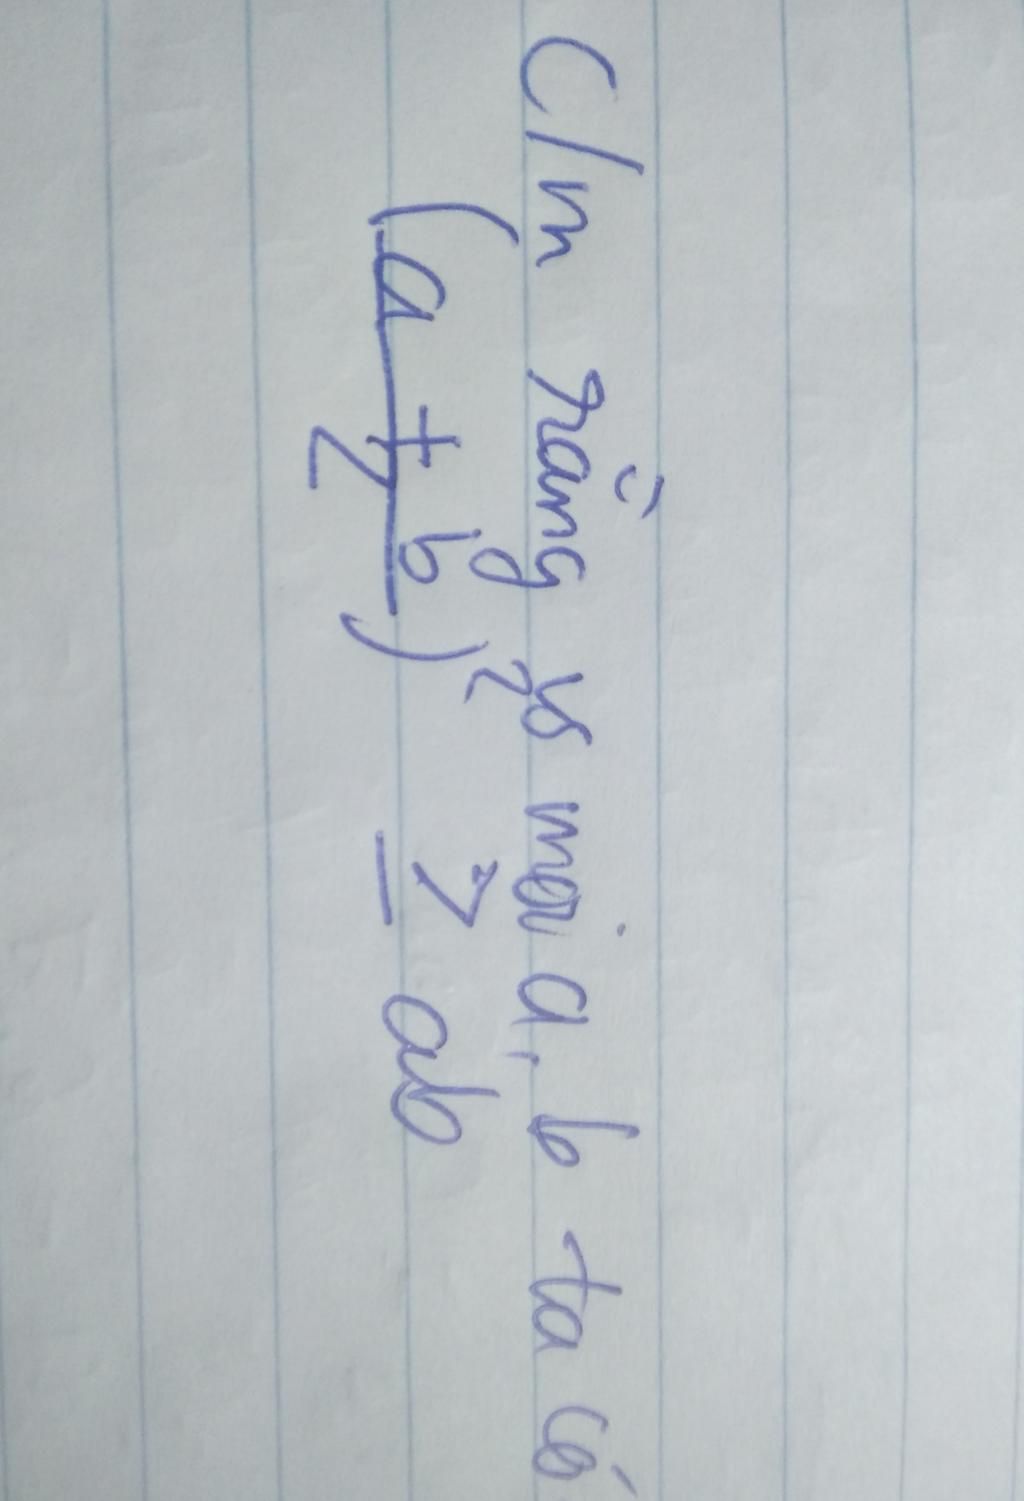 C/m rằng vs mọi a, b ta có
(a + b / 2)² ≥ ab